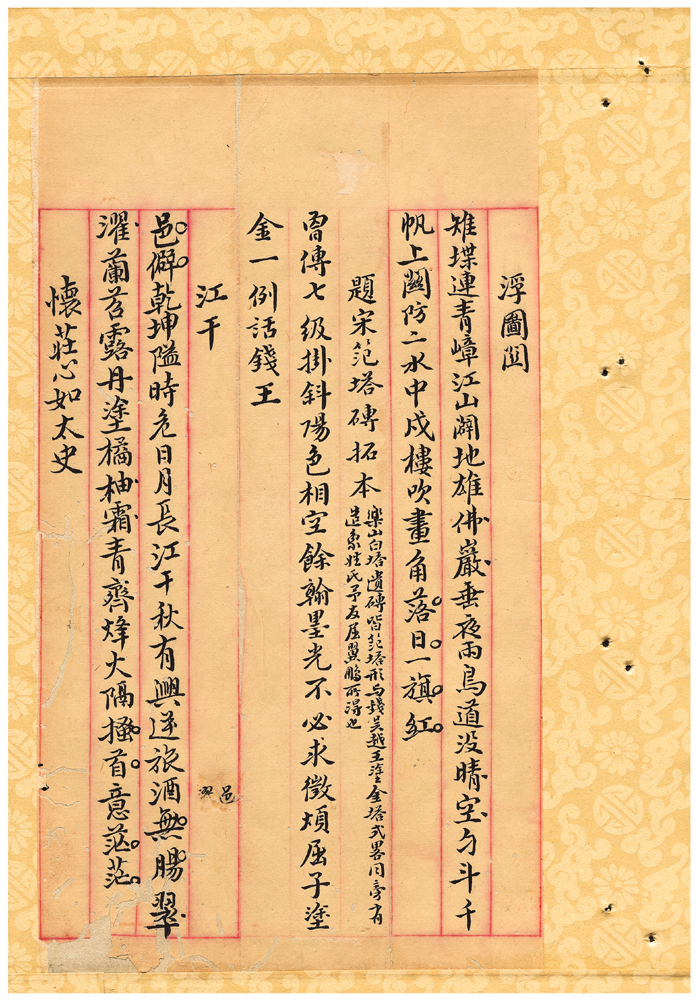 浮圖關
雉堞連青嶂江山闢地雄佛巖垂夜雨鳥道沒晴空勺斗千
帆上關防二水中戍樓吹畫角落日一旗紅
題宋笵塔磚拓本
樂山白塔遺磚皆笵塔形与錢吴越王塗金塔式畧同旁有
造象姓氏予友屈翼鵬所得也
曾傳七級掛斜陽色相空餘翰墨光不必求徵煩屈子塗
金一例話錢王
江干
邑僻乾坤隘時危日月長江干秋有興逆旅酒無腸翠
邑
濯蘭苕露丹塗橘柚霜青齊烽火隔搔首意茫茫
懷莊心如太史